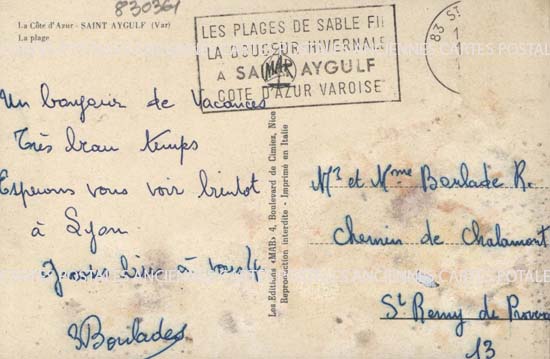 830361
La Côte d'Azur - SAINT AYGULF (Var)
La plage
LES PLAGES DE SABLE FIN
LA DOUCEUR HIVERNALE
A SAINT AYGULF
COTE D'AZUR VAROISE
MAR
83 ST
Un bonjour de Vacances
Très beau temps
Espérons vous voir bientôt
à Lyon.
bien à vous 4
Boulades
Les Editions «MAR» 4, Boulevard de Cimiez, Nice
Reproduction interdite - Imprimé en Italie
Mr et Mme Boulade R.
Chemin de Chalamont
St Remy de Proven
13
CARTES POSTALES ANCIENNES